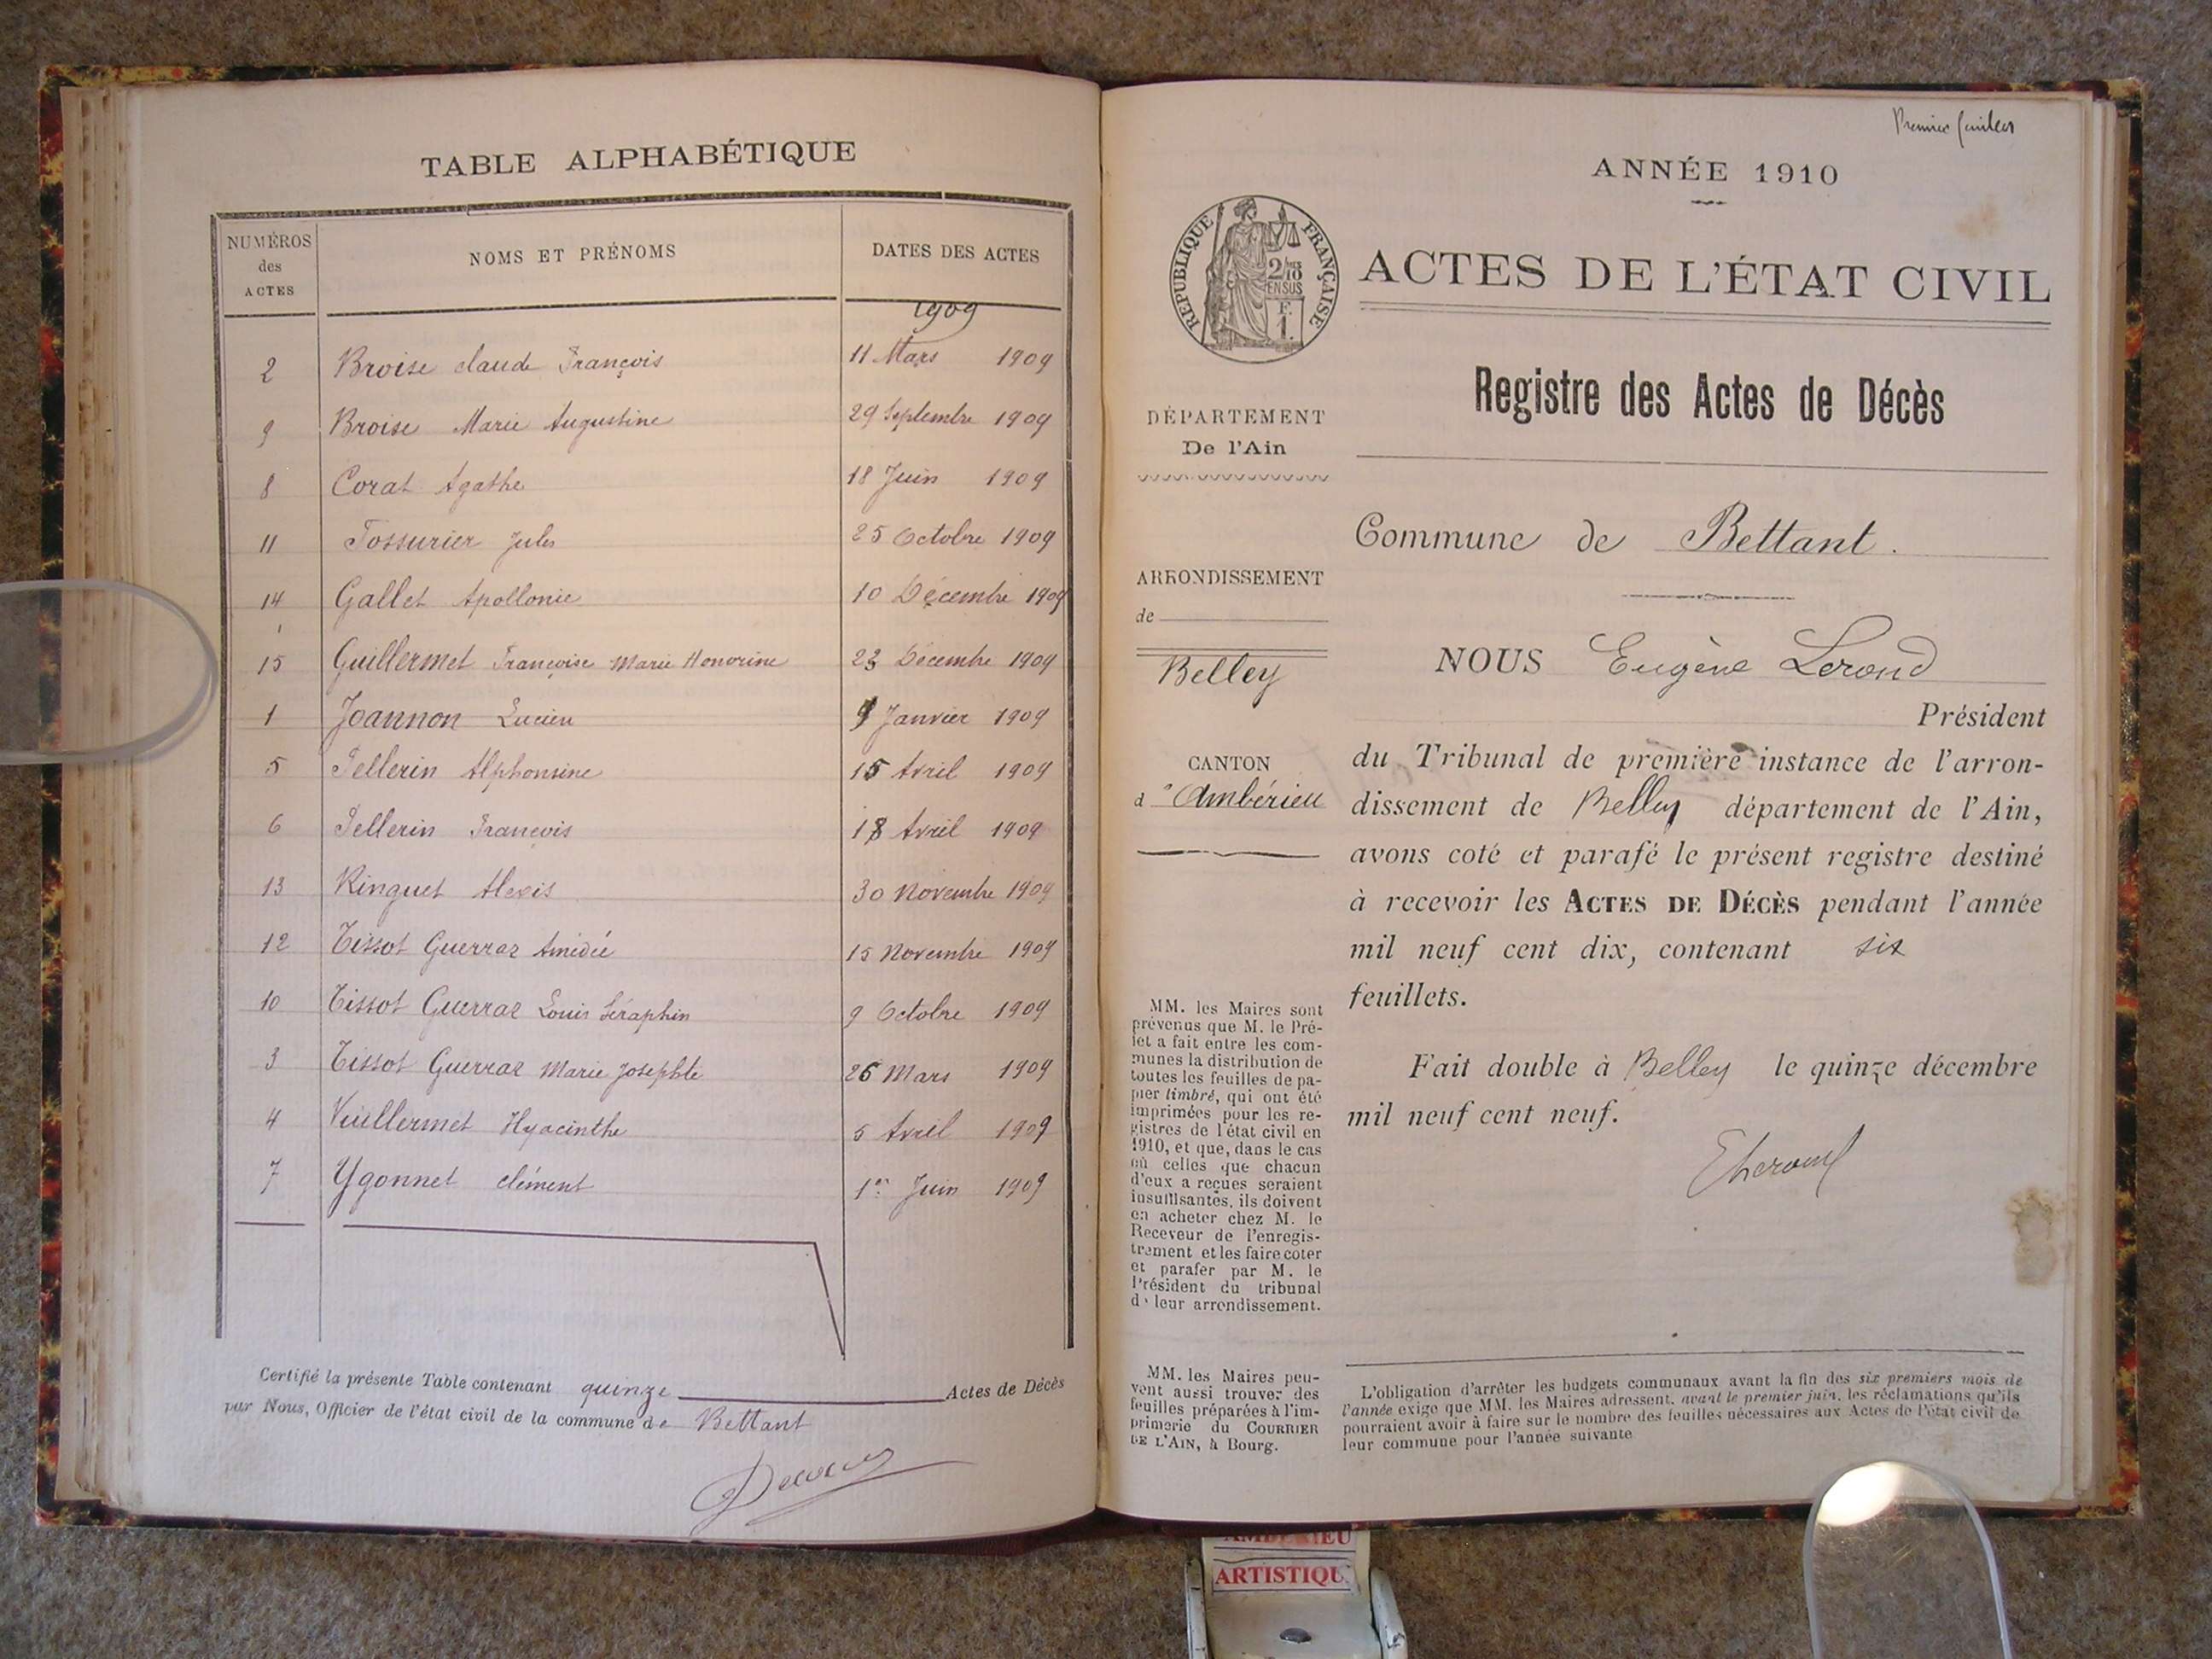 TABLE ALPHABÉTIQUE
NUMÉROS des ACTES NOMS ET PRÉNOMS DATES DES ACTES
1909
2 Broise claude François 11 Mars 1909
9 Broise Marie Augustine 29 Septembre 1909
8 Corat Agathe 18 Juin 1909
11 Fossurier Jules 25 Octobre 1909
14 Gallet Apollonie 10 Décembre 1909
15 Guillermet Françoise Marie Honorine 23 Décembre 1909
1 Joannon Lucien Janvier 1909
5 Pellerin Alphonsine 15 Avril 1909
6 Pellerin François 18 Avril 1909
13 Ringuet Alexis 30 Novembre 1909
12 Tissot Guerraz Amédée 15 Novembre 1909
10 Tissot Guerraz Louis Séraphin 9 Octobre 1909
3 Tissot Guerraz Marie Josephte 26 Mars 1909
4 Vuillermet Hyacinthe 5 Avril 1909
7 Ygonnet clément 1er Juin 1909
Certifié la présente Table contenant quinze Actes de Décès
par Nous, Officier de l'état civil de la commune de Bettant
Premier feuillet
ANNÉE 1910
RÉPUBLIQUE FRANÇAISE
2/10es
EN SUS
F.
1.
ACTES DE L'ÉTAT CIVIL
Registre des Actes de Décès
DÉPARTEMENT
De l'Ain
ARRONDISSEMENT
de
Belley
CANTON
d'Ambérieu
MM. les Maires sont
prévenus que M. le Pré-
fet a fait entre les com-
munes la distribution de
toutes les feuilles de pa-
pier timbré, qui ont été
imprimées pour les re-
gistres de l'état civil en
1910, et que, dans le cas
où celles que chacun
d'eux a reçues seraient
insuffisantes, ils doivent
en acheter chez M. le
Receveur de l'enregis-
trement et les faire coter
et parafer par M. le
Président du tribunal
de leur arrondissement.
MM. les Maires peu-
vent aussi trouver des
feuilles préparées à l'im-
primerie du COURRIER
DE L'AIN, à Bourg.
Commune de Bettant.
NOUS Eugène Lerond
Président
du Tribunal de première instance de l'arron-
dissement de Belley département de l'Ain,
avons coté et parafé le présent registre destiné
à recevoir les ACTES DE DÉCÈS pendant l'année
mil neuf cent dix, contenant six
feuillets.
Fait double à Belley le quinze décembre
mil neuf cent neuf.
L'obligation d'arrêter les budgets communaux avant la fin des six premiers mois de
l'année exige que MM. les Maires adressent, avant le premier juin, les réclamations qu'ils
pourraient avoir à faire sur le nombre des feuilles nécessaires aux Actes de l'état civil de
leur commune pour l'année suivante
AMBERIEU
ARTISTIQU